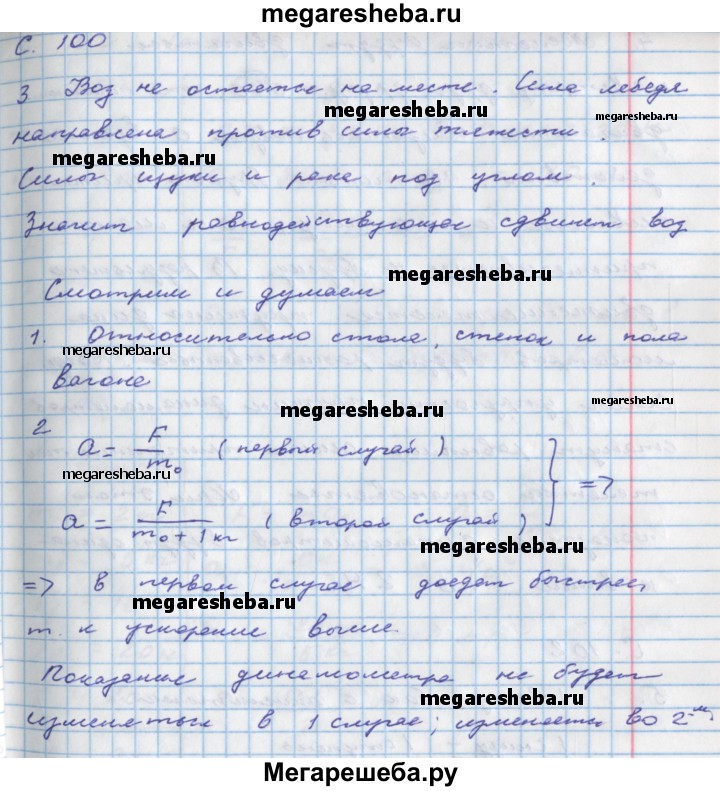 megaresheba.ru
С. 100
3 Воз не остается на месте. Сила лебедя
megaresheba.ru
megaresheba.ru
направлена против силы тяжести.
megaresheba.ru
Силы щуки и рака под углом.
Значит равнодействующая сдвинет воз
megaresheba.ru
Смотрим и думаем
1. Относительно стола, стенок и пола
megaresheba.ru
вагона
megaresheba.ru
megaresheba.ru
2 a = F/m₀ (первый случай)
megaresheba.ru
=>
a = F/(m₀ + 1 кг) (второй случай)
megaresheba.ru
=> в первом случае доедет быстрее,
megaresheba.ru
megaresheba.ru
т. к ускорение выше.
Показание динамометра не будет
megaresheba.ru
изменяться в 1 случае; во 2-м.
Мегарешеба.ру